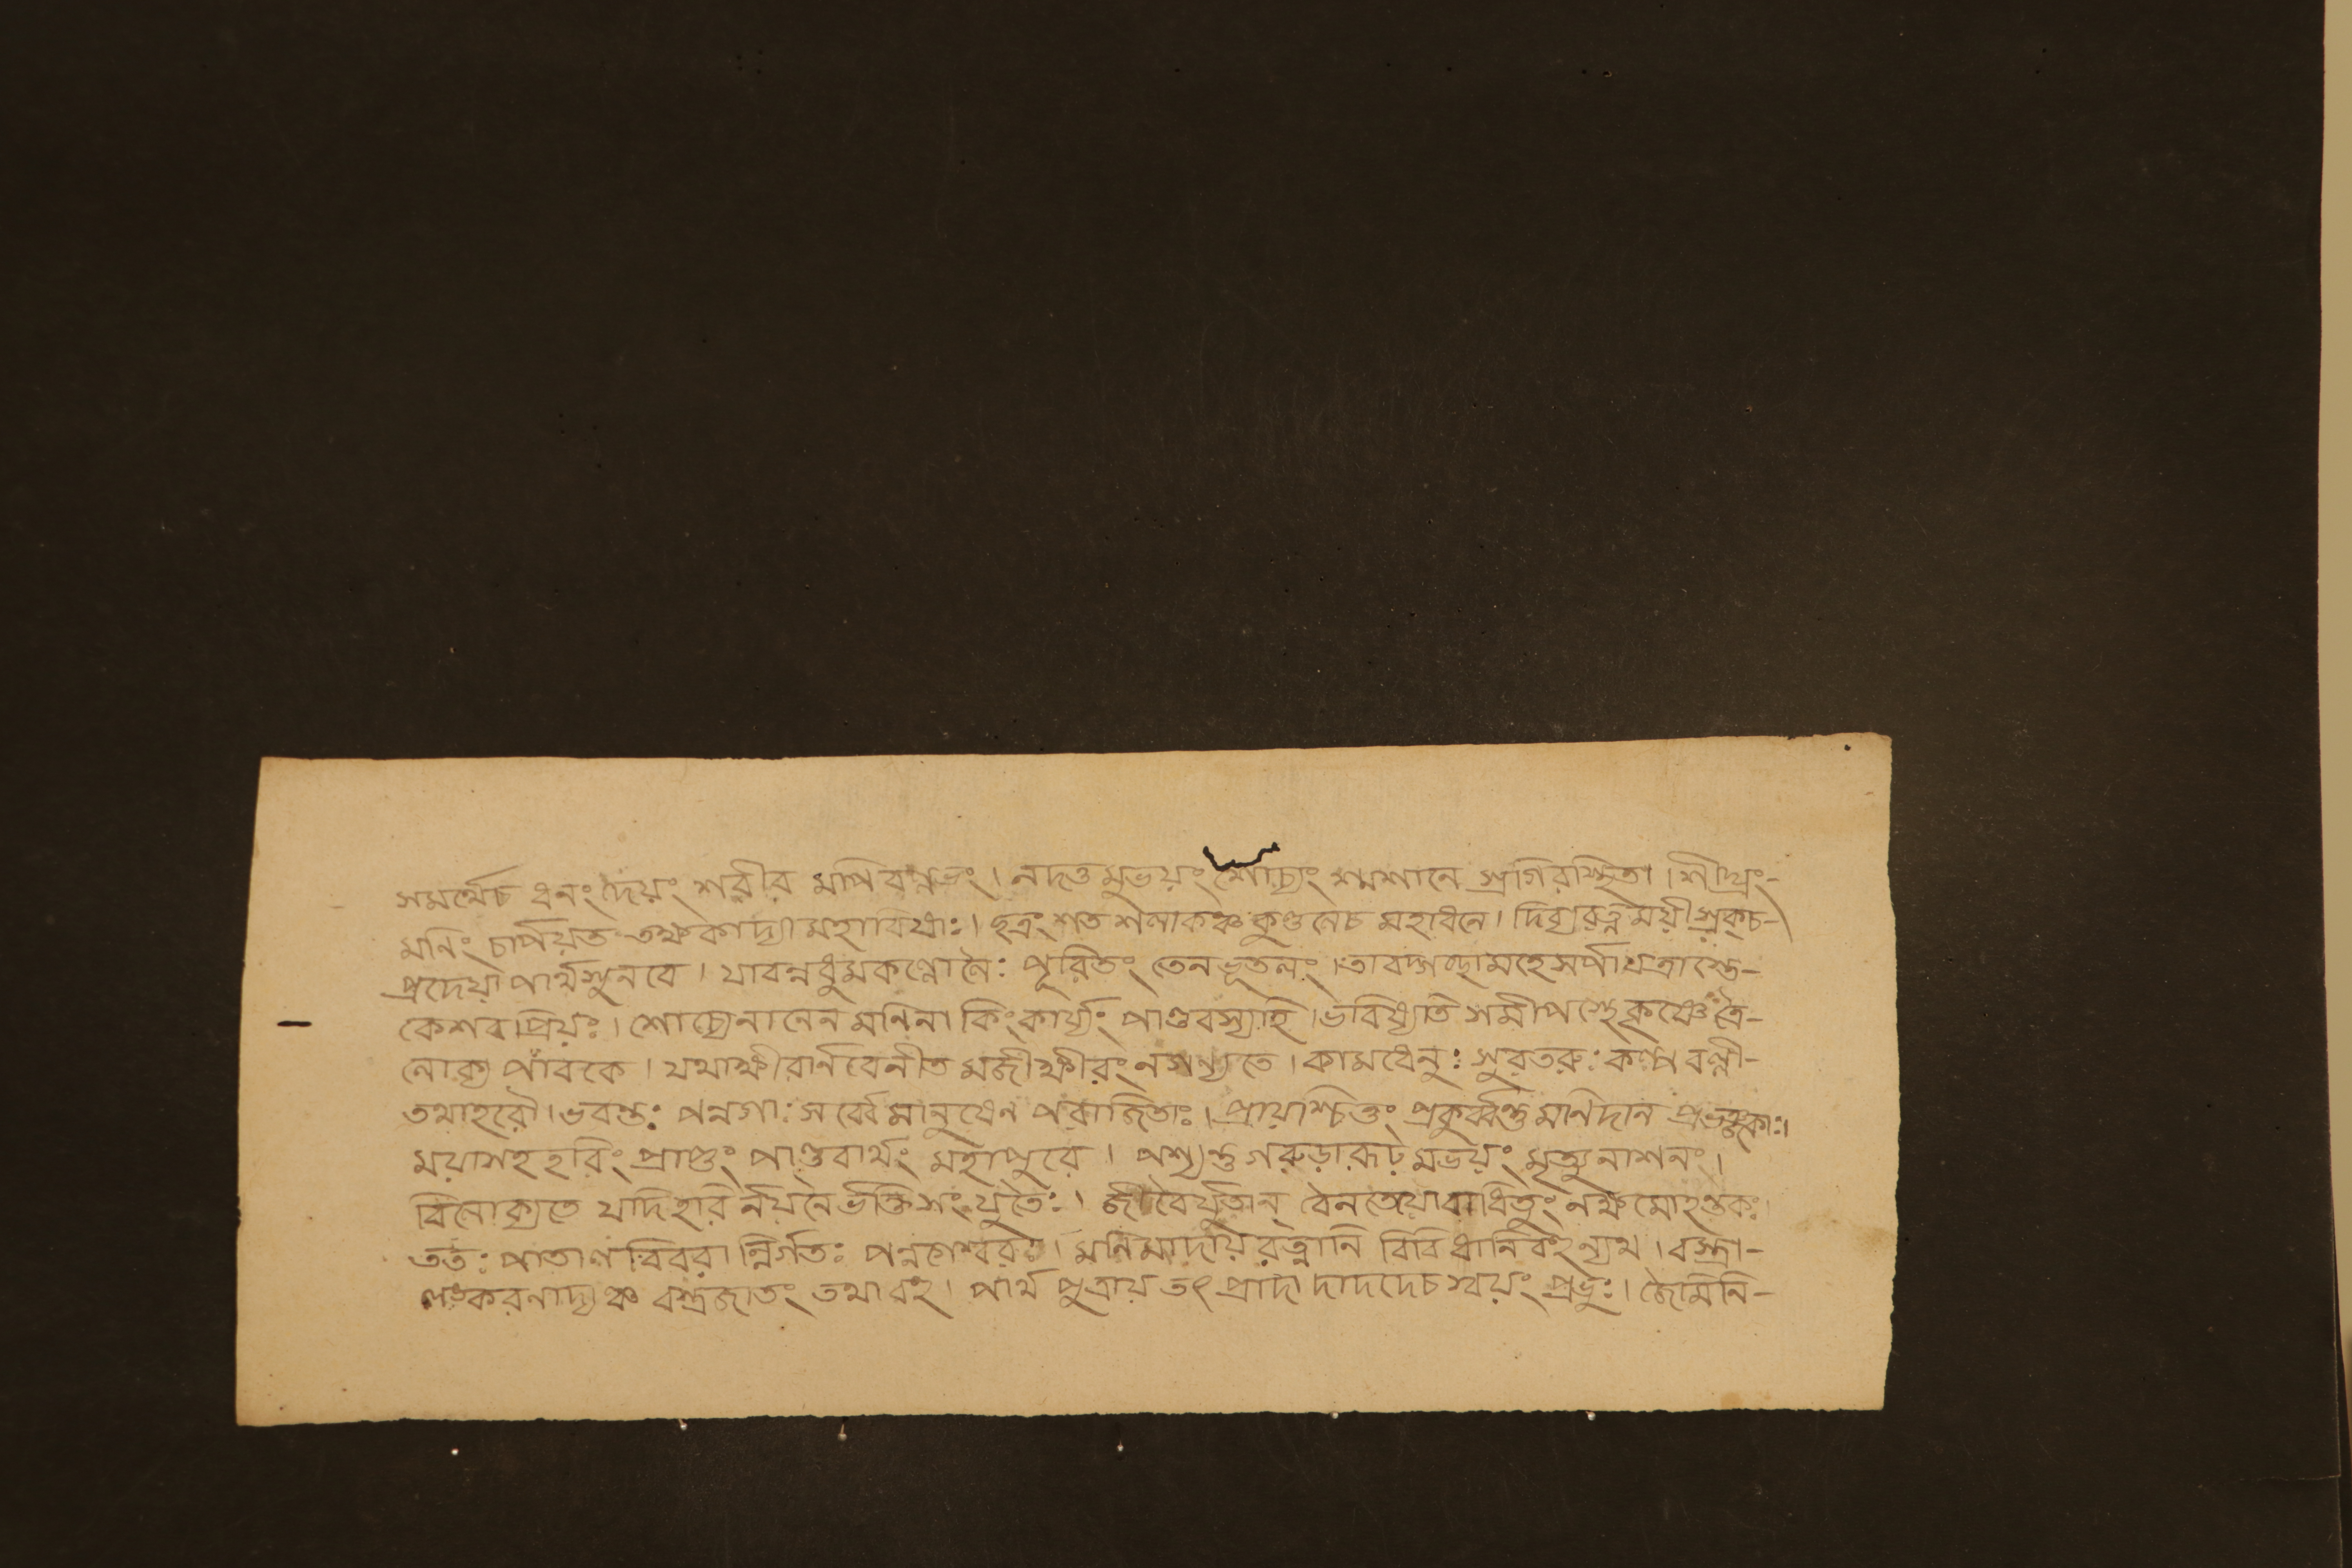 সমর্থেচ ধনং দেয়ং শরীর মপি বল্লভং। নদত্ত মুভয়ং শোচ্যং শ্মশানে স্রগিরস্থিতা। শীঘ্রং-
মনিং চার্পয়ত তক্ষকাদ্যা মহাবিষাঃ। ছত্রং শত শলাকঞ্চ কুণ্ডলেচ মহাধনে। দিব্যরত্নময়ী স্রক্চ-
প্রদেয়া পার্থসুনবে। যাবন্নধুমকল্লোলৈঃ পূরিতং তেন ভূতলং। তাবদ্গচ্ছামহে সর্পা যত্রাস্তে-
কেশব প্রিয়ঃ। শোচ্যেনানেন মনিনা কিংকার্য্যং পাণ্ডবস্যাহি। ভবিষ্যতি সমীপস্থে কৃষ্ণে ত্রৈ-
লোক্য পাবকে। যথাক্ষীরার্নবেনীত মজীক্ষীরং নগন্যতে। কামধেনুঃ সুরতরুঃ কল্প বল্লী-
তথাহরৌ। ভবন্তঃ পন্নগাঃ সর্ব্বে মানুষেন পরাজিতাঃ। প্রায়শ্চিত্তং প্রকুর্ব্বন্তু মনিদান
ময়াসহ হরিং প্রাপ্তুং পাণ্ডবার্থং মহাপুরে। পশ্যন্তু গরুড়ারূঢ় মভয়ং মৃত্যুনাশনং।
বিলোক্যতে যদিহরি র্নয়নৈর্ভক্তি সংযুতৈঃ। জীবৈর্যুতান্ বৈনতেয়ো বাধিতুং নক্ষমোহন্তকঃ
ততঃ পাতাল বিবরা ন্নির্গতঃ পন্নগেশ্বরঃ। মনিমাদায় রত্নানি বিবিধানি বহূন্যথ। বস্ত্রা-
লঙ্করনাদ্যঞ্চ বস্ত্রজাতং তথা বহু। পার্থ পুত্রায় তৎ প্রাদা দাদদেচ স্বয়ং প্রভুঃ। জৈমিনি-